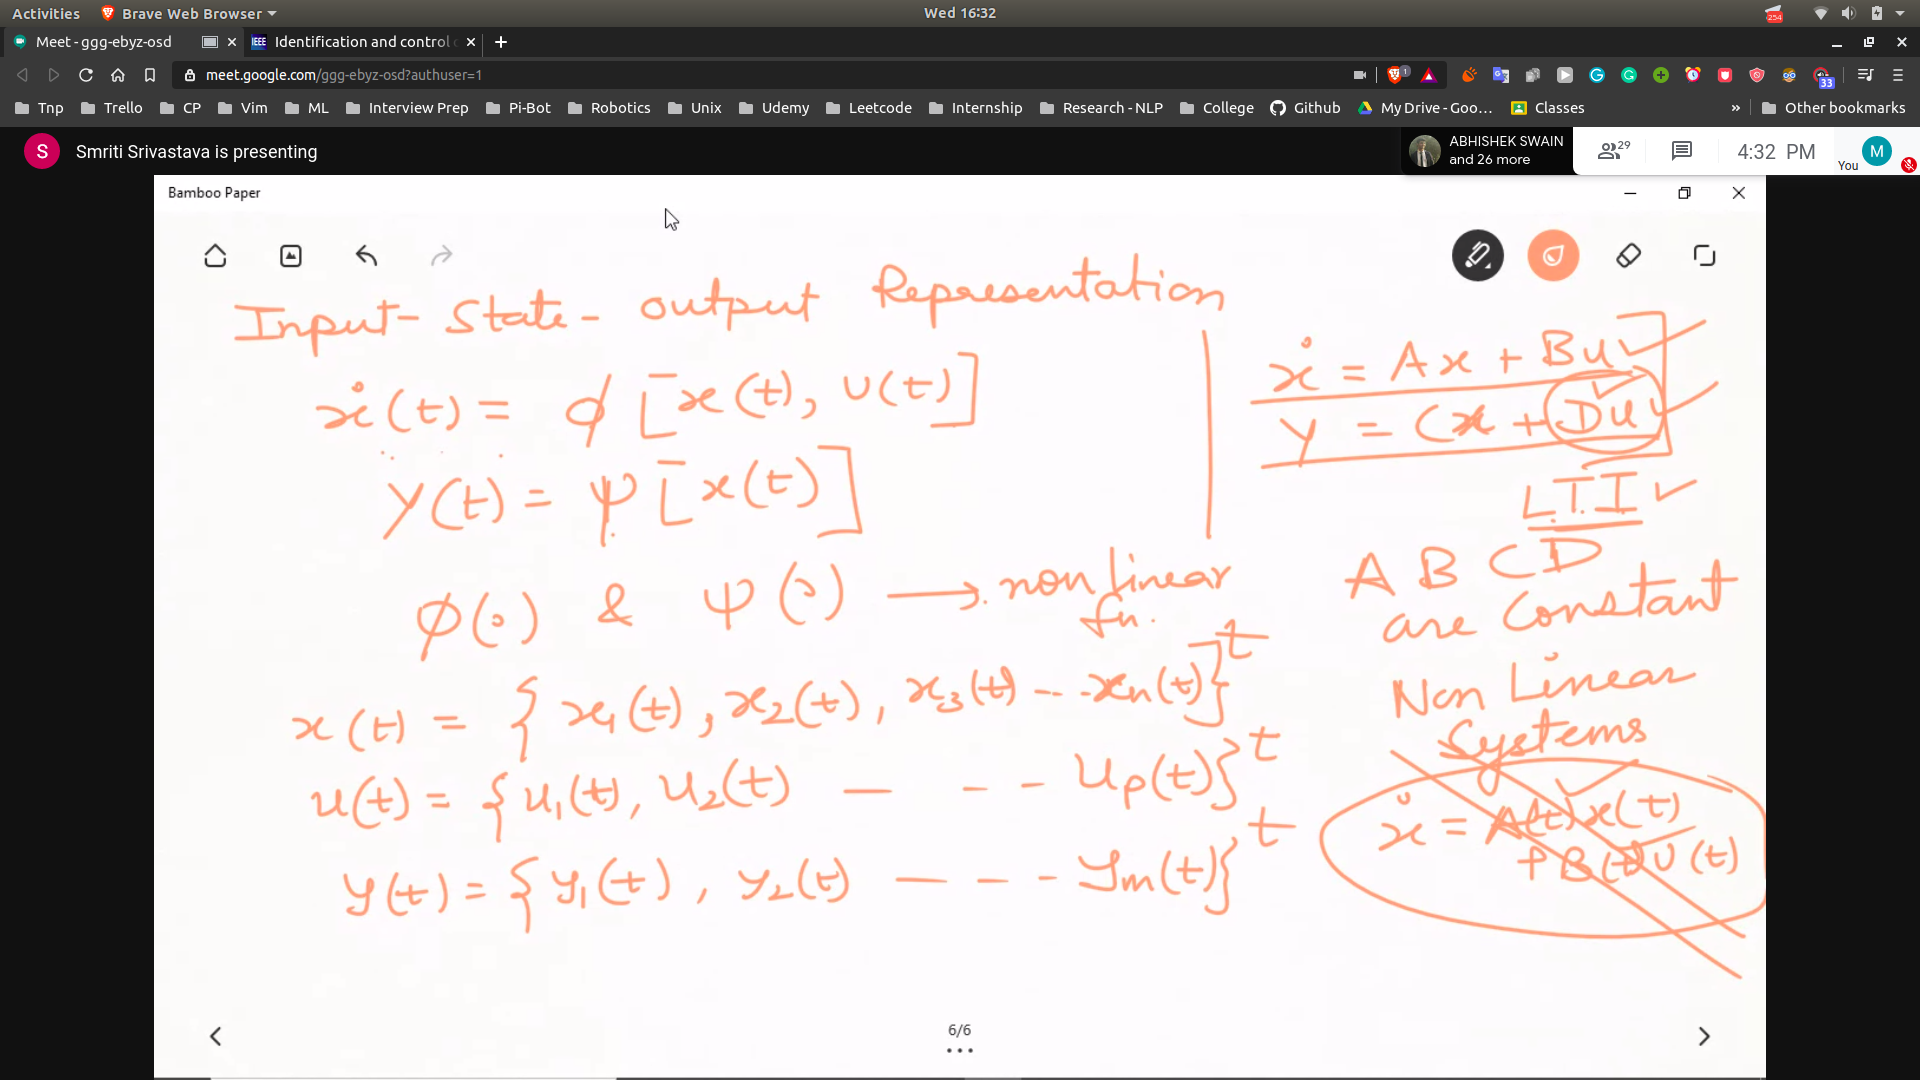 Activities Brave Web Browser Wed 16:32 254
Meet - ggg-ebyz-osd IEEE Identification and control
meet.google.com/ggg-ebyz-osd?authuser=1 1 33
Tnp Trello CP Vim ML Interview Prep Pi-Bot Robotics Unix Udemy Leetcode Internship Research - NLP College Github My Drive - Goo… Classes » Other bookmarks
S Smriti Srivastava is presenting
ABHISHEK SWAIN
and 26 more
29
4:32 PM
You M
Bamboo Paper
Input - State - output Representation
ẋ(t) = φ [x(t), U(t)]
Y(t) = ψ [x(t)]
φ(∘) & ψ(∘) → nonlinear
fn.
x(t) = { x₁(t), x₂(t), x₃(t) -- - xn(t)]}ᵗ
u(t) = { u₁(t), U₂(t) — - - Up(t)}ᵗ
y(t) = { y₁(t), y₂(t) — - - ym(t)}ᵗ
ẋ = Ax + Bu
Y = Cx + Du
L.T.I
A B C D
are Constant
Non Linear
Systems
ẋ = A(t) x(t)
+ B(t) U(t)
6/6